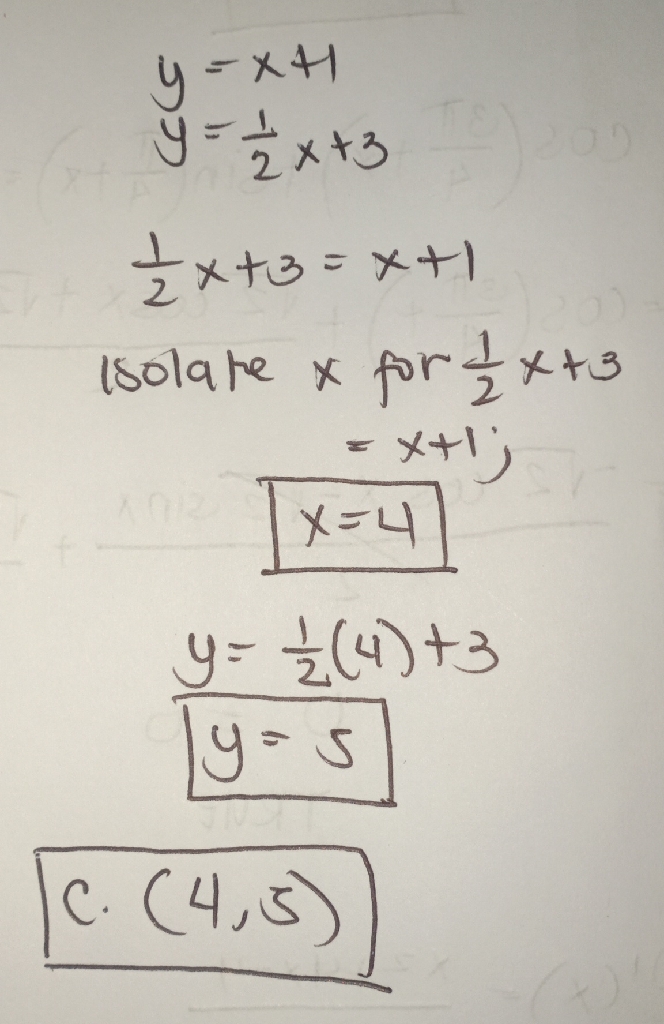 y = x+1
y = 1/2 x+3
1/2 x+3 = x+1
Isolate x for 1/2 x+3
= x+1;
x=4
y= 1/2(4)+3
y= 5
C. (4,5)